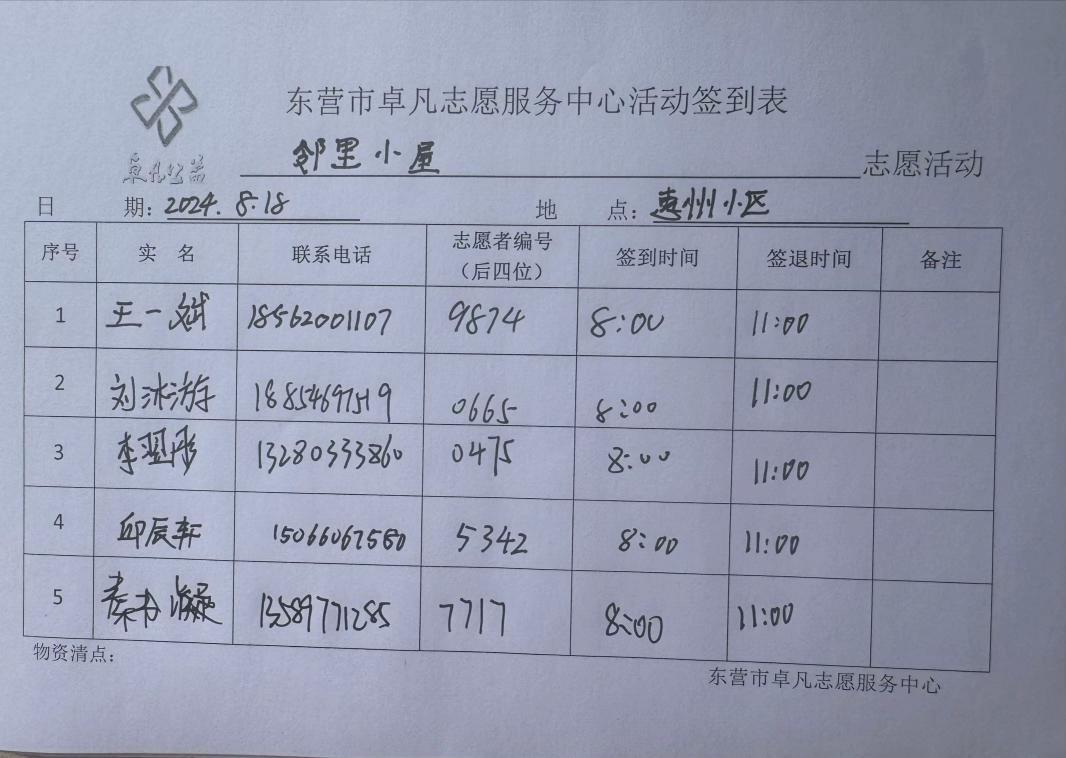 东营市卓凡志愿服务中心活动签到表
卓凡公益
邻里小屋 志愿活动
日 期：2024.8.18 地 点：惠州小区
序号 实 名 联系电话 志愿者编号（后四位） 签到时间 签退时间 备注
1 王一斌 18562001107 9874 8:00 11:00
2 刘沐游 18854697519 0665 8:00 11:00
3 李翌彤 13280333860 0475 8:00 11:00
4 邱辰轩 15066067580 5342 8:00 11:00
5 秦书凝 13589771285 7717 8:00 11:00
物资清点：
东营市卓凡志愿服务中心